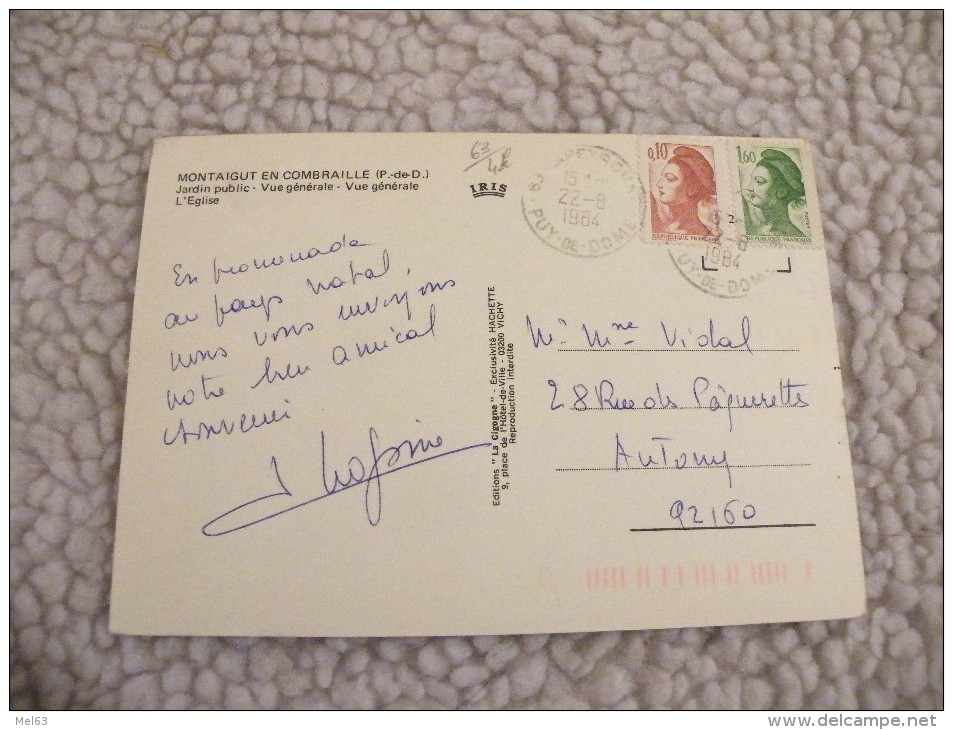 MONTAIGUT EN COMBRAILLE (P.-de-D.)
Jardin public - Vue générale - Vue générale
L'Eglise
63
IRIS
15
22-8
1984
63 - PUY-DE-DOME
0,10
REPUBLIQUE FRANCAISE
1,60
REPUBLIQUE FRANCAISE
1984
UY-DE-DOM
En promenade
au pays natal,
nous vous envoyons
notre bien amical
souvenir
Editions "La Cigogne" - Exclusivité HACHETTE
9, place de l'Hôtel-de-Ville - 03200 VICHY
Reproduction interdite
Mr Mme Vidal
28 Rue des Pâquerettes
Antony
92160
Mel63
delcampe.net